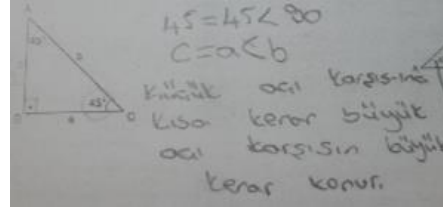 A
45 = 45 < 90
c = a < b
45°
küçük açı karşısına
kısa kenar büyük
açı karşısın büyük
kenar konur.